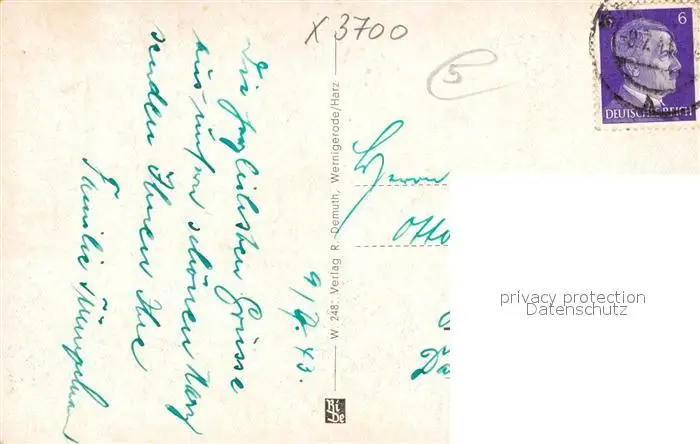 X 3700
5
6
DEUTSCHES REICH
9/7. 43.
Die herzlichsten Grüsse
aus unsern schönen Harz
senden Ihnen Ihre
Familie
W 248: Verlag R. Demuth, Wernigerode/Harz
Ri
De
Herrn
Otto
privacy protection
Datenschutz